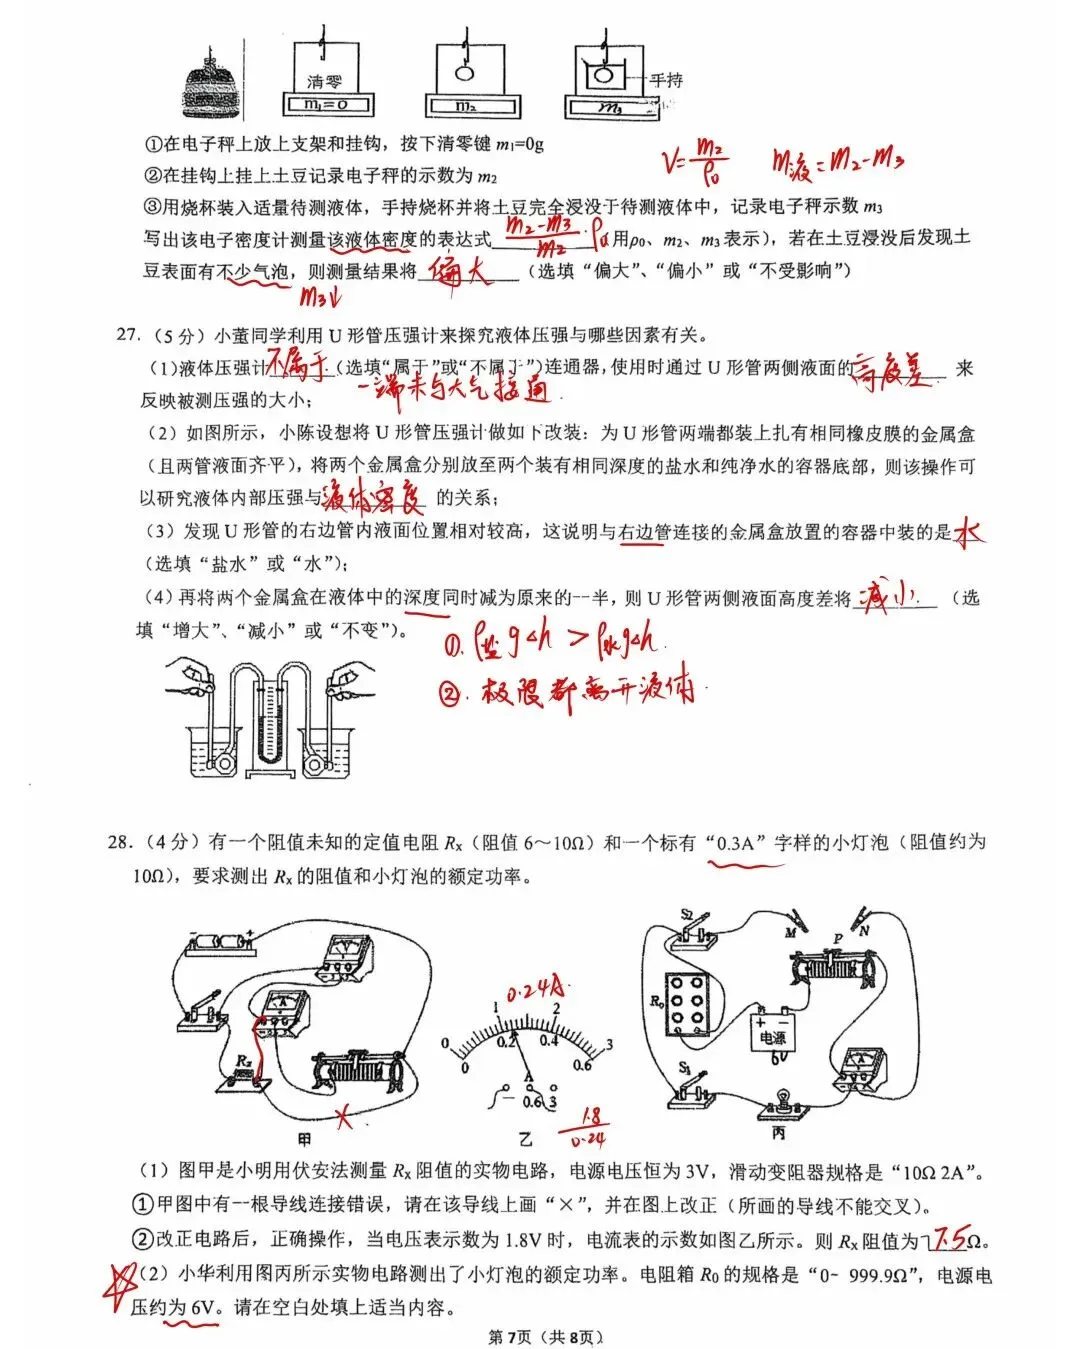 清零
m₁=0
m₂
m₃
手持
①在电子秤上放上支架和挂钩，按下清零键 m₁=0g
V=m₂/ρ₀ m液=m₂-m₃
②在挂钩上挂上土豆记录电子秤的示数为 m₂
③用烧杯装入适量待测液体，手持烧杯并将土豆完全浸没于待测液体中，记录电子秤示数 m₃
写出该电子密度计测量该液体密度的表达式 (m₂-m₃)/m₂·ρ₀ 用ρ₀、m₂、m₃表示），若在土豆浸没后发现土
豆表面有不少气泡，则测量结果将 偏大 （选填“偏大”、“偏小”或“不受影响”）
m₃↓
27.（5分）小董同学利用 U 形管压强计来探究液体压强与哪些因素有关。
（1）液体压强计 不属于 （选填“属于”或“不属于”）连通器，使用时通过 U 形管两侧液面的 高度差 来
一端未与大气接通.
反映被测压强的大小；
（2）如图所示，小陈设想将 U 形管压强计做如下改装：为 U 形管两端都装上扎有相同橡皮膜的金属盒
（且两管液面齐平），将两个金属盒分别放至两个装有相同深度的盐水和纯净水的容器底部，则该操作可
以研究液体内部压强与 液体密度 的关系；
（3）发现 U 形管的右边管内液面位置相对较高，这说明与右边管连接的金属盒放置的容器中装的是 水
（选填“盐水”或“水”）；
（4）再将两个金属盒在液体中的深度同时减为原来的一半，则 U 形管两侧液面高度差将 减小. （选
填“增大”、“减小”或“不变”）。
①. ρ盐g△h > ρ水g△h.
②. 极限都离开液体.
28.（4分）有一个阻值未知的定值电阻 Rx（阻值 6～10Ω）和一个标有“0.3A”字样的小灯泡（阻值约为
10Ω），要求测出 Rx 的阻值和小灯泡的额定功率。
- +
V
A
Rx
×
甲
0.24A.
0 1 2 3
0 0.2 0.4 0.6
A
- 0.6 3
乙
1.8/0.24
S₂
M
N
P
R₀
+ -
电源
6V
A
S₁
丙
（1）图甲是小明用伏安法测量 Rx 阻值的实物电路，电源电压恒为 3V，滑动变阻器规格是“10Ω 2A”。
①甲图中有一根导线连接错误，请在该导线上画“×”，并在图上改正（所画的导线不能交叉）。
②改正电路后，正确操作，当电压表示数为 1.8V 时，电流表的示数如图乙所示。则 Rx 阻值为 7.5 Ω。
（2）小华利用图丙所示实物电路测出了小灯泡的额定功率。电阻箱 R₀ 的规格是“0~ 999.9Ω”，电源电
压约为 6V。请在空白处填上适当内容。
第 7页（共 8页）